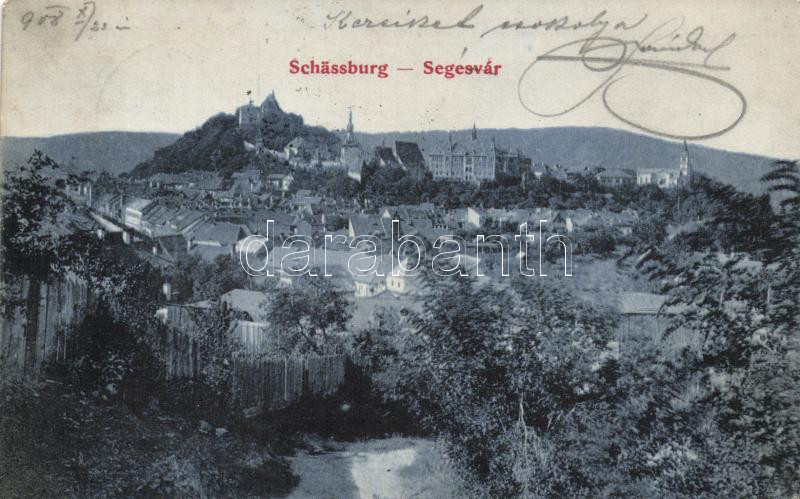 908 X/23 n
Kezeiket csokolja
Sándor
Schässburg — Segesvár
darabanth